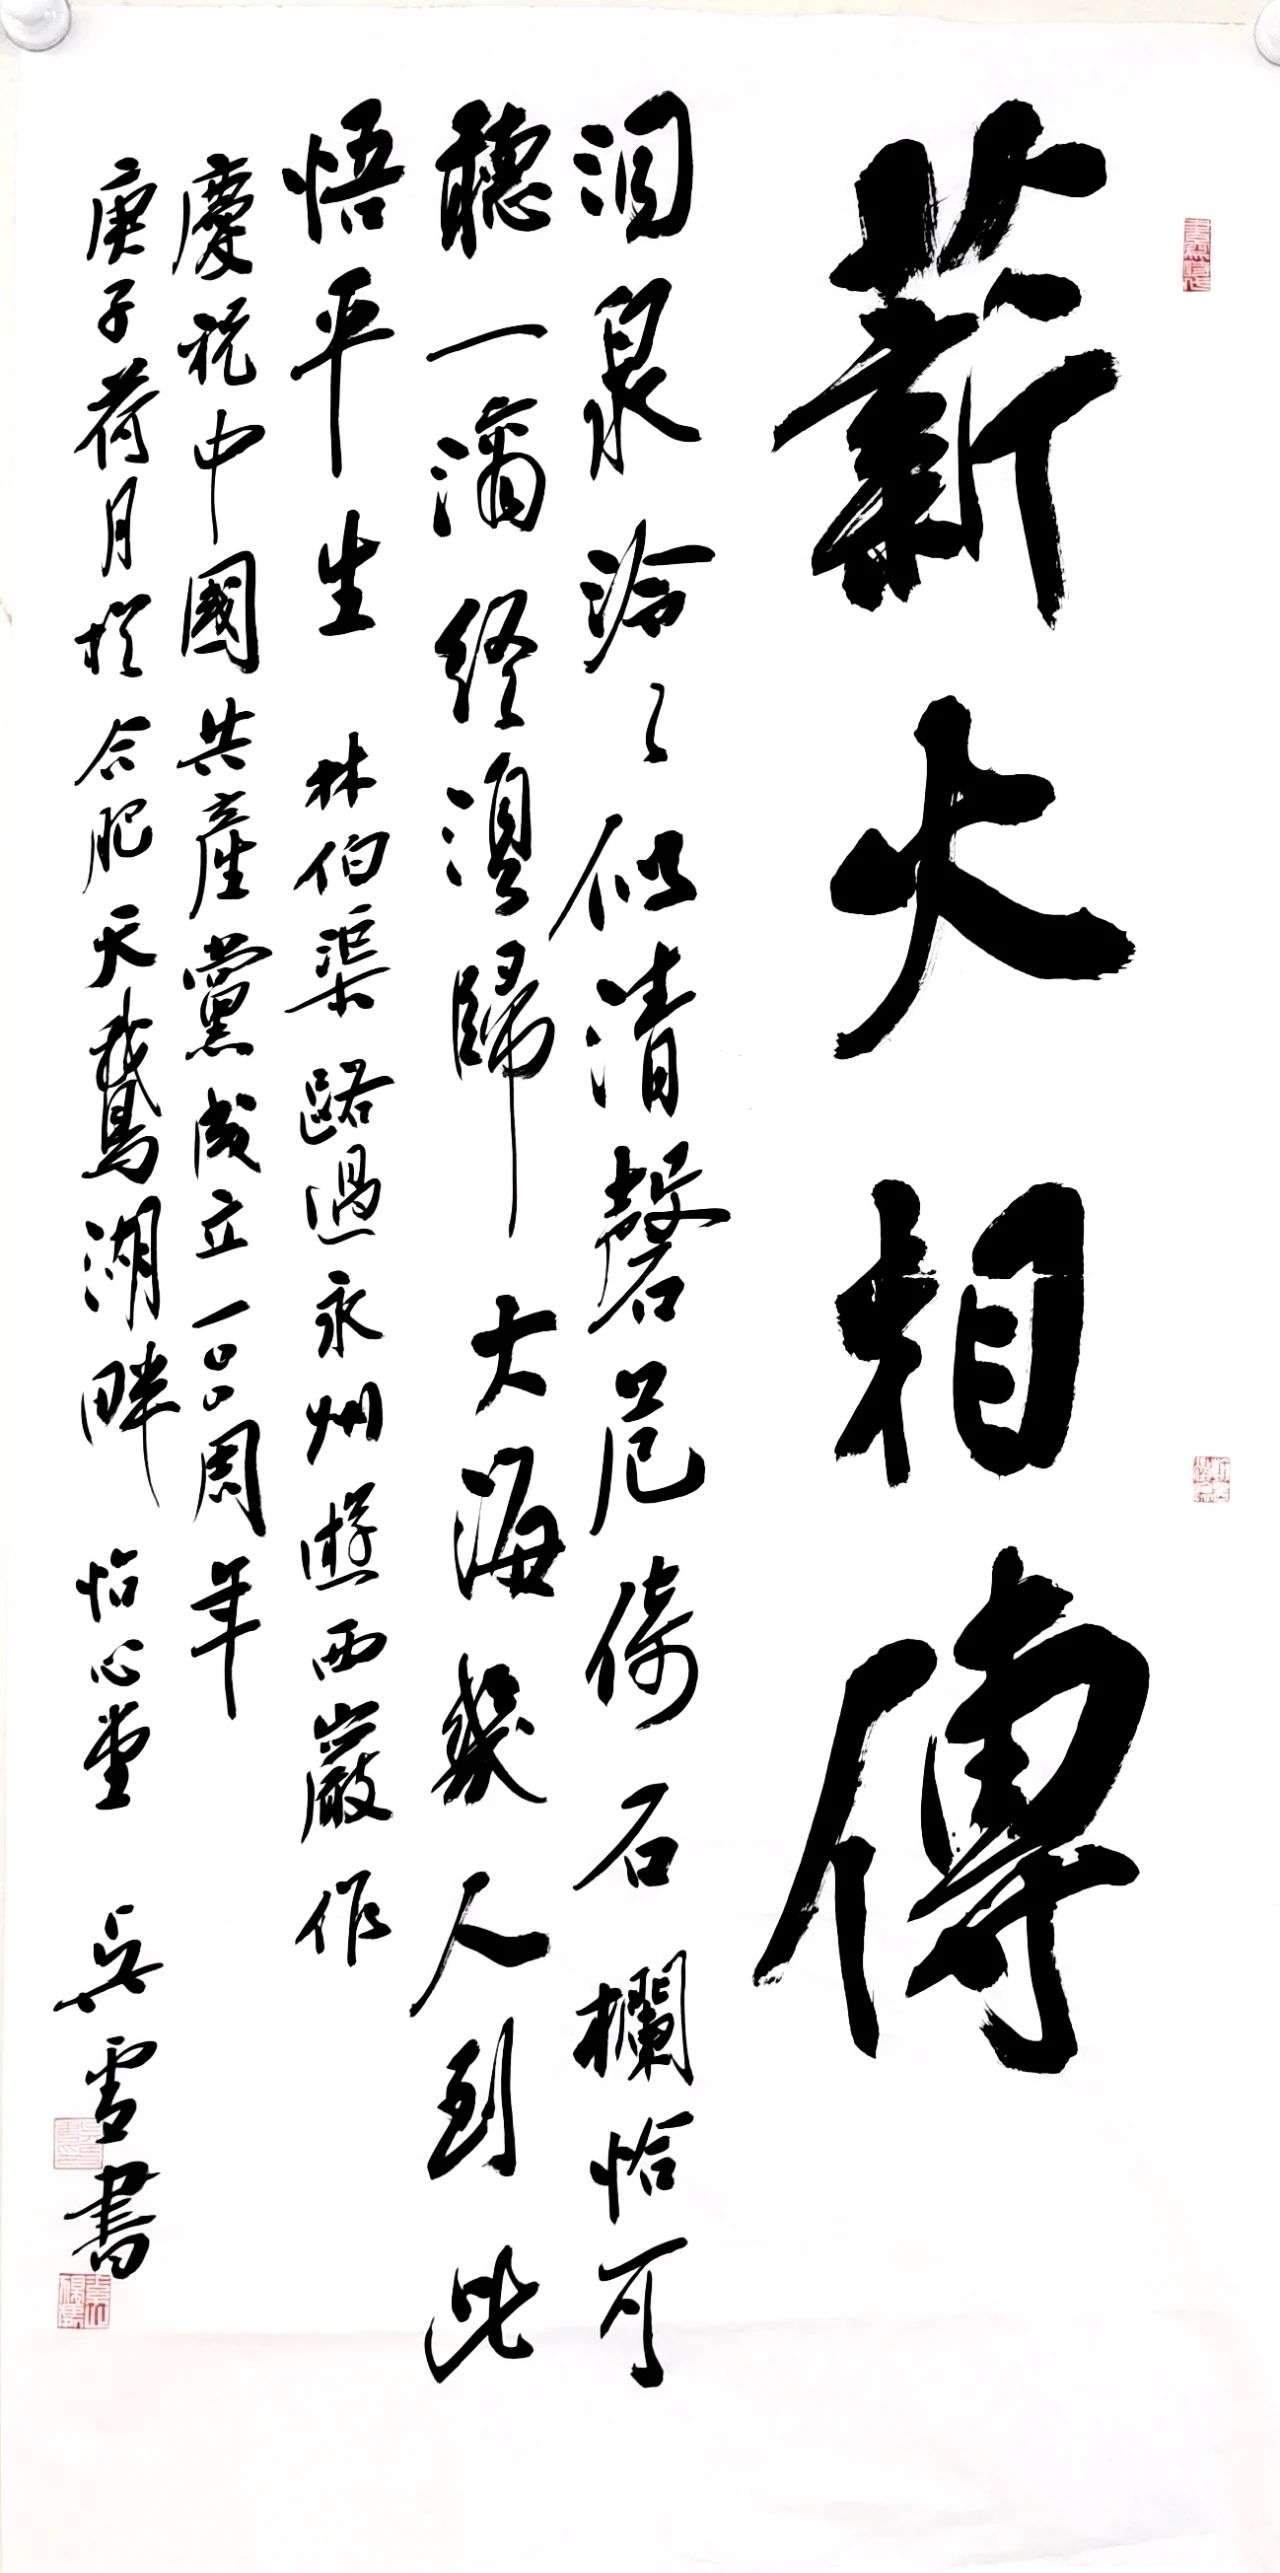 薪火相傳
洞泉泠々似清磬 咫倚石欄恰可
聽一滴終須歸大海幾人到此
悟平生 林伯渠路過永州遊西巖作
慶祝中國共産黨成立一〇〇周年
庚子荷月於合肥天鵝湖畔 怡心堂 吴雪書